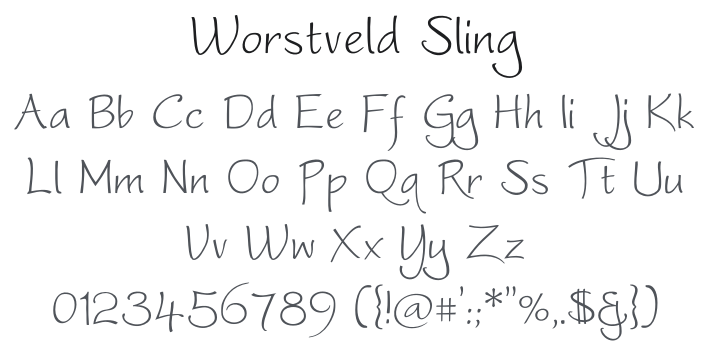 Worstveld Sling
Aa Bb Cc Dd Ee Ff Gg Hh Ii Jj Kk
Ll Mm Nn Oo Pp Qq Rr Ss Tt Uu
Vv Ww Xx Yy Zz
0123456789 ({!@#':;*"%,.$&})